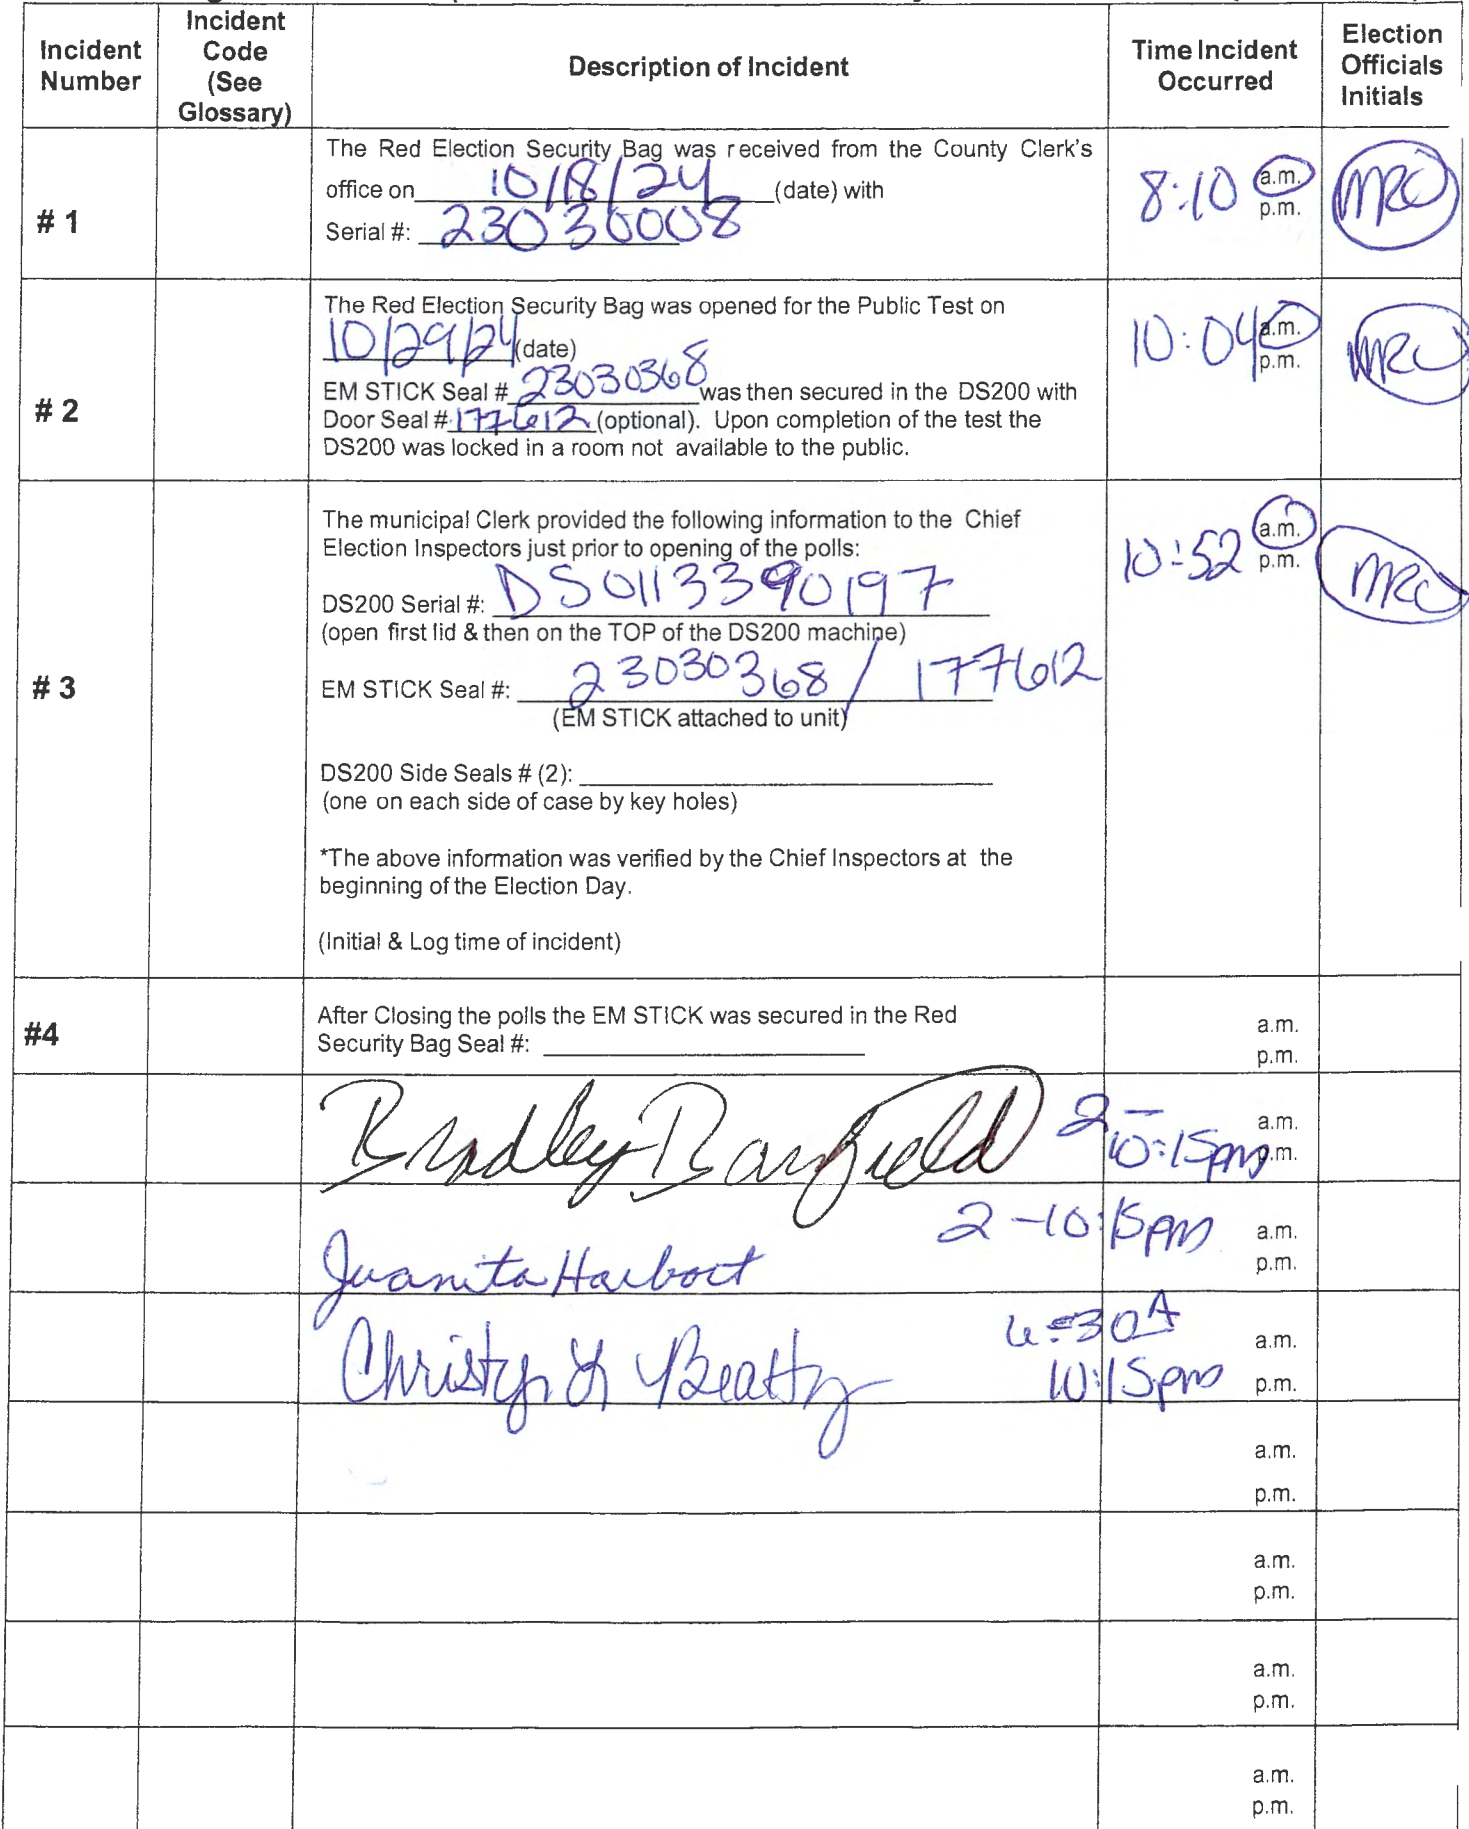 Incident Number
Incident Code (See Glossary)
Description of Incident
Time Incident Occurred
Election Officials Initials
# 1
The Red Election Security Bag was received from the County Clerk's
office on 10/18/24 (date) with
Serial #: 23030008
8:10 a.m.
p.m.
MRC
# 2
The Red Election Security Bag was opened for the Public Test on
10/29/24 (date)
EM STICK Seal # 23030368 was then secured in the DS200 with
Door Seal #: 177612 (optional). Upon completion of the test the
DS200 was locked in a room not available to the public.
10:04 a.m.
p.m.
MRC
# 3
The municipal Clerk provided the following information to the Chief
Election Inspectors just prior to opening of the polls:
DS200 Serial #: DS0113390197
(open first lid & then on the TOP of the DS200 machine)
EM STICK Seal #: 23030368 / 177612
(EM STICK attached to unit)
DS200 Side Seals # (2):
(one on each side of case by key holes)
*The above information was verified by the Chief Inspectors at the
beginning of the Election Day.
(Initial & Log time of incident)
10:52 a.m.
p.m.
MRC
#4
After Closing the polls the EM STICK was secured in the Red
Security Bag Seal #:
a.m.
p.m.
Bradley Banfield 2 –
10:15pm
a.m.
p.m.
Juanita Harbort 2 - 10:15pm
a.m.
p.m.
Christy L Beatty 6:30A
10:15pm
a.m.
p.m.
a.m.
p.m.
a.m.
p.m.
a.m.
p.m.
a.m.
p.m.